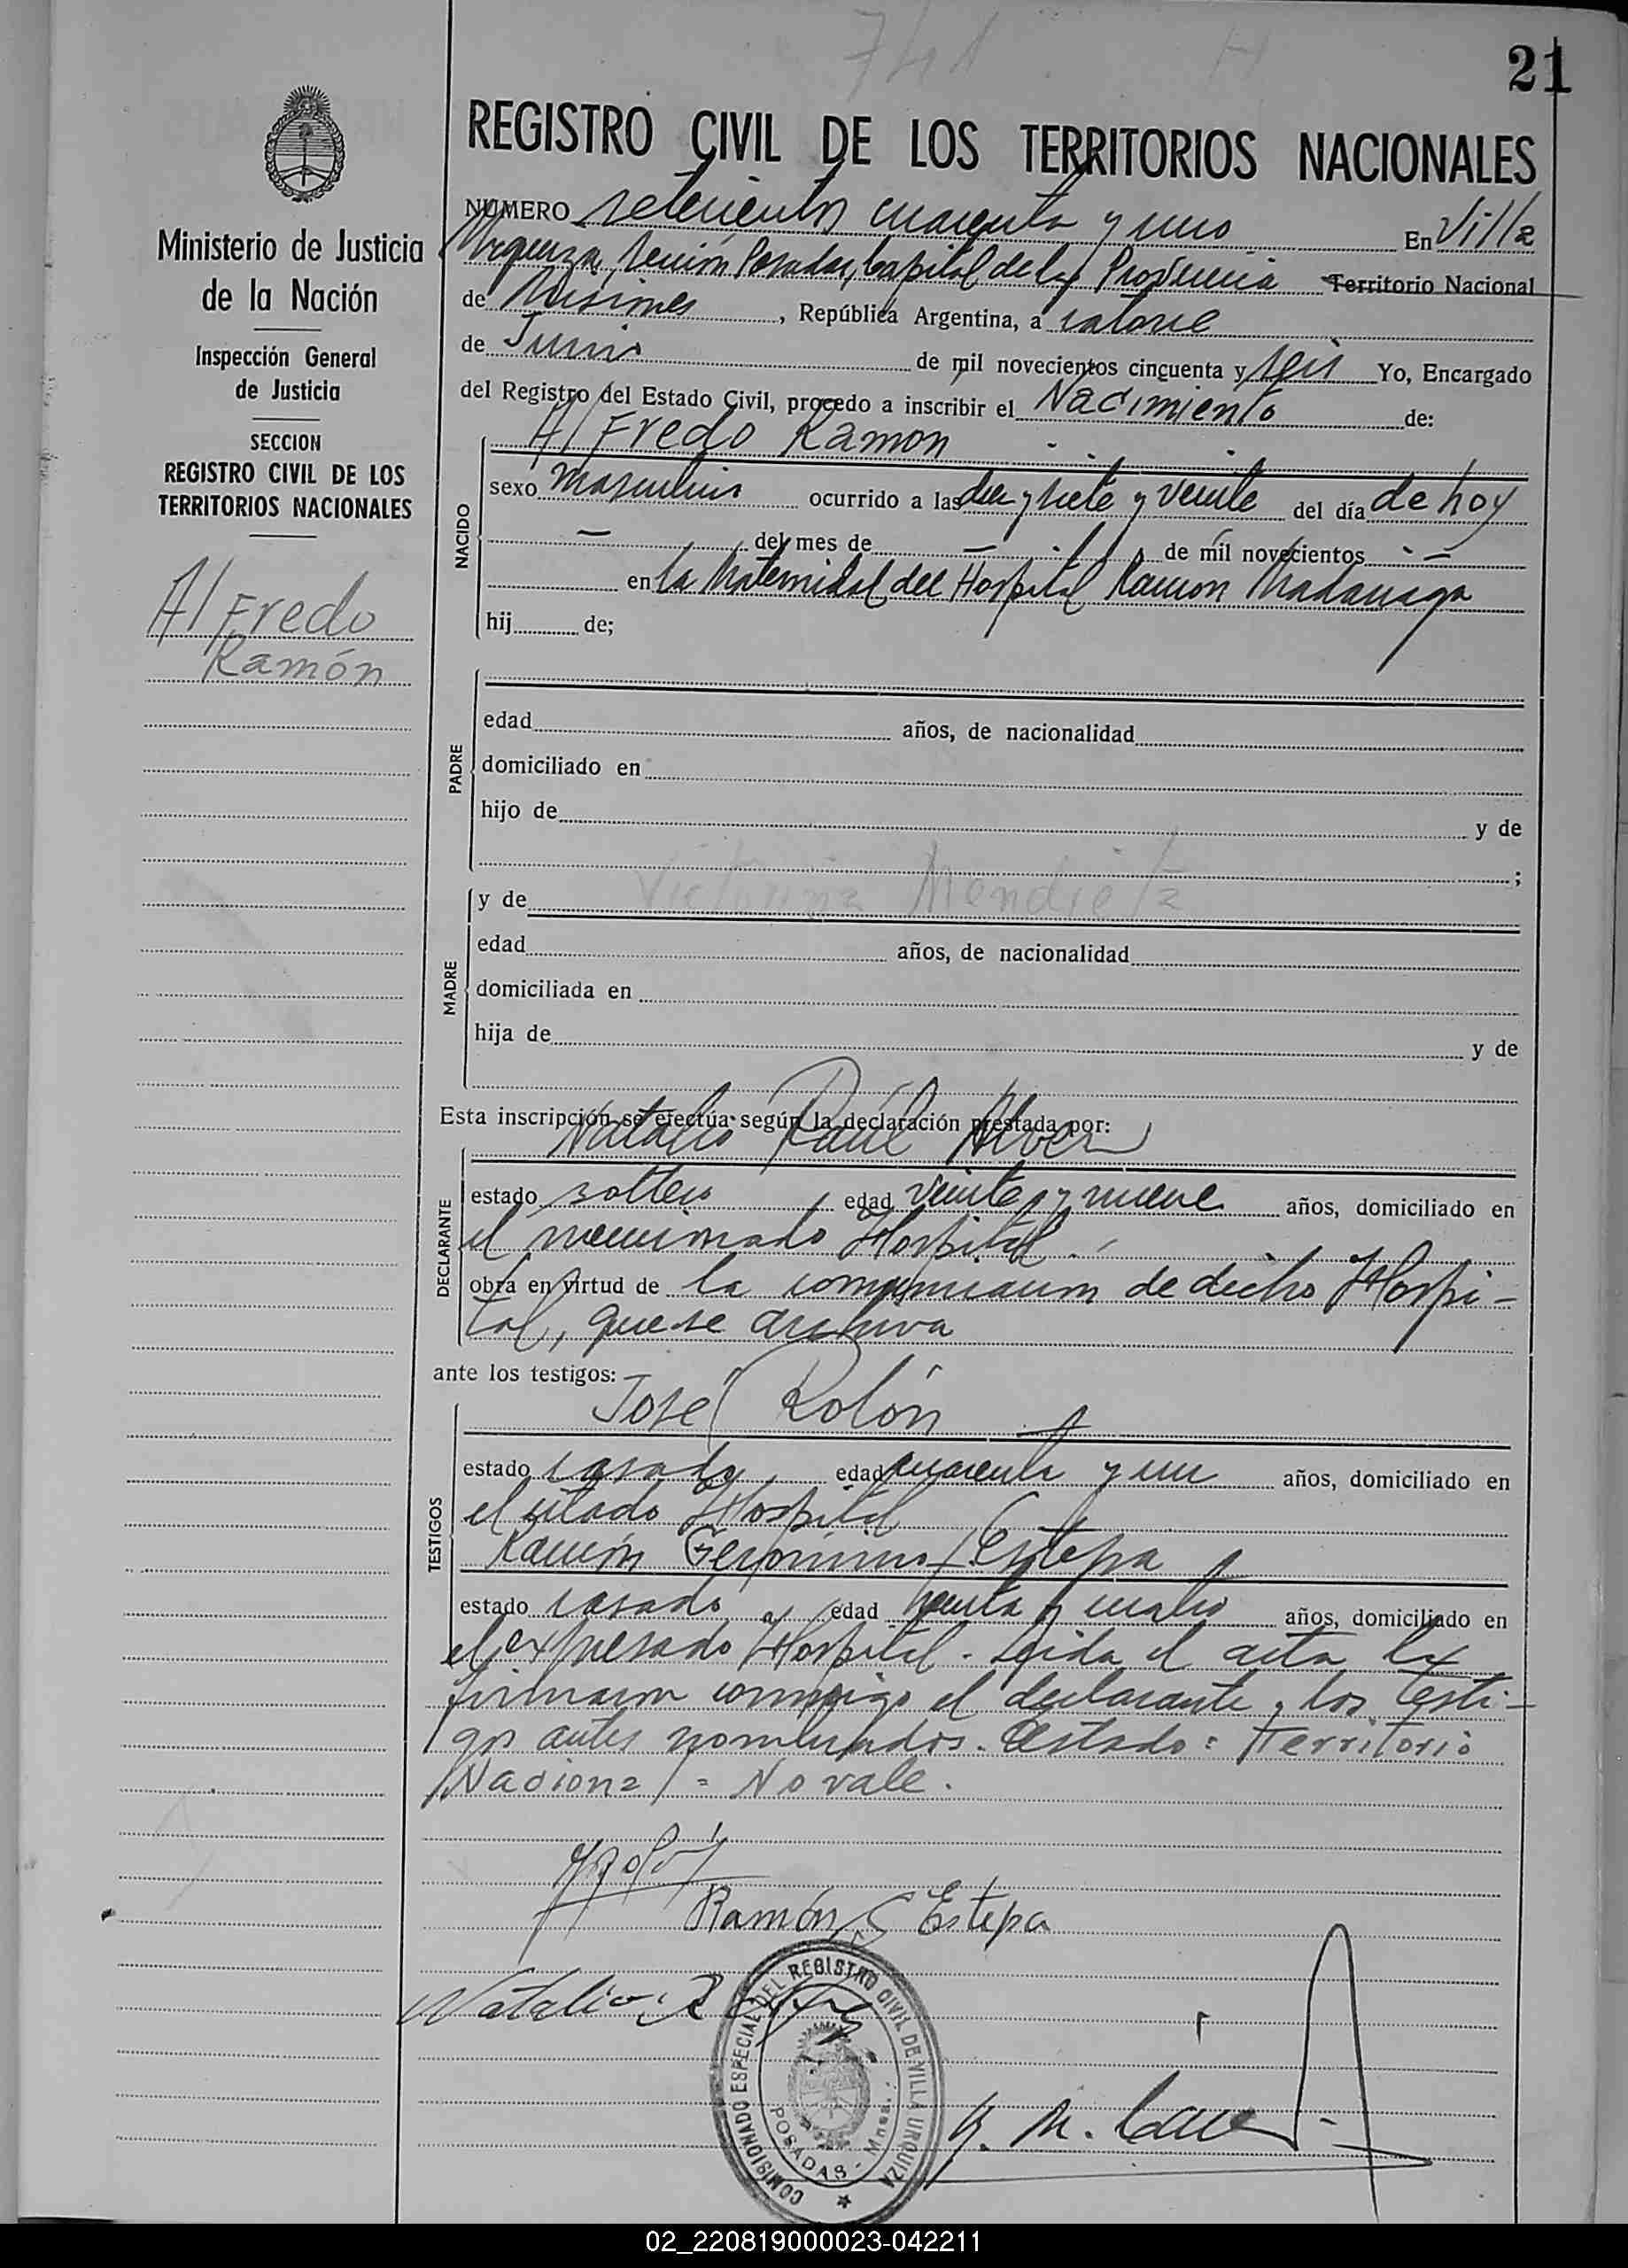 741
21
REGISTRO CIVIL DE LOS TERRITORIOS NACIONALES
Ministerio de Justicia
de la Nación
Inspección General
de Justicia
SECCION
REGISTRO CIVIL DE LOS
TERRITORIOS NACIONALES
Alfredo
Ramón
NUMERO setecientos cuarenta y uno En Villa
Urquiza, sección Posadas, Capital de la Provincia Territorio Nacional
de Misiones, República Argentina, a catorce
de Junio de mil novecientos cincuenta y seis Yo, Encargado
del Registro del Estado Civil, procedo a inscribir el Nacimiento de:
NACIDO
Alfredo Ramon
sexo masculino ocurrido a las diez y siete y veinte del día de hoy
— del mes de — de mil novecientos —
en la Maternidad del Hospital Ramon Madariaga
hij de;
PADRE
edad años, de nacionalidad
domiciliado en
hijo de y de
;
MADRE
y de Victorina Mendieta
edad años, de nacionalidad
domiciliada en
hija de y de
Esta inscripción se efectúa según la declaración prestada por:
DECLARANTE
Natalio Raúl
estado soltero edad veinte y nueve años, domiciliado en
el mencionado Hospital.
obra en virtud de la comunicacion de dicho Hospi-
tal, que se archiva
ante los testigos:
TESTIGOS
José Rolón
estado casado, edad cuarenta y un años, domiciliado en
el citado Hospital
Ramón Geronimo Estepa
estado casado edad treinta y cuatro años, domiciliado en
el expresado Hospital. Leida el acta la
firmaron conmigo el declarante y los testi-
gos antes nombrados. Testado: Territorio
Nacional = No vale.
Ramón G Estepa
Natalio R
COMISIONADO ESPECIAL DEL REGISTRO CIVIL DE VILLA URQUIZA
POSADAS - Mnes.
02_220819000023-042211